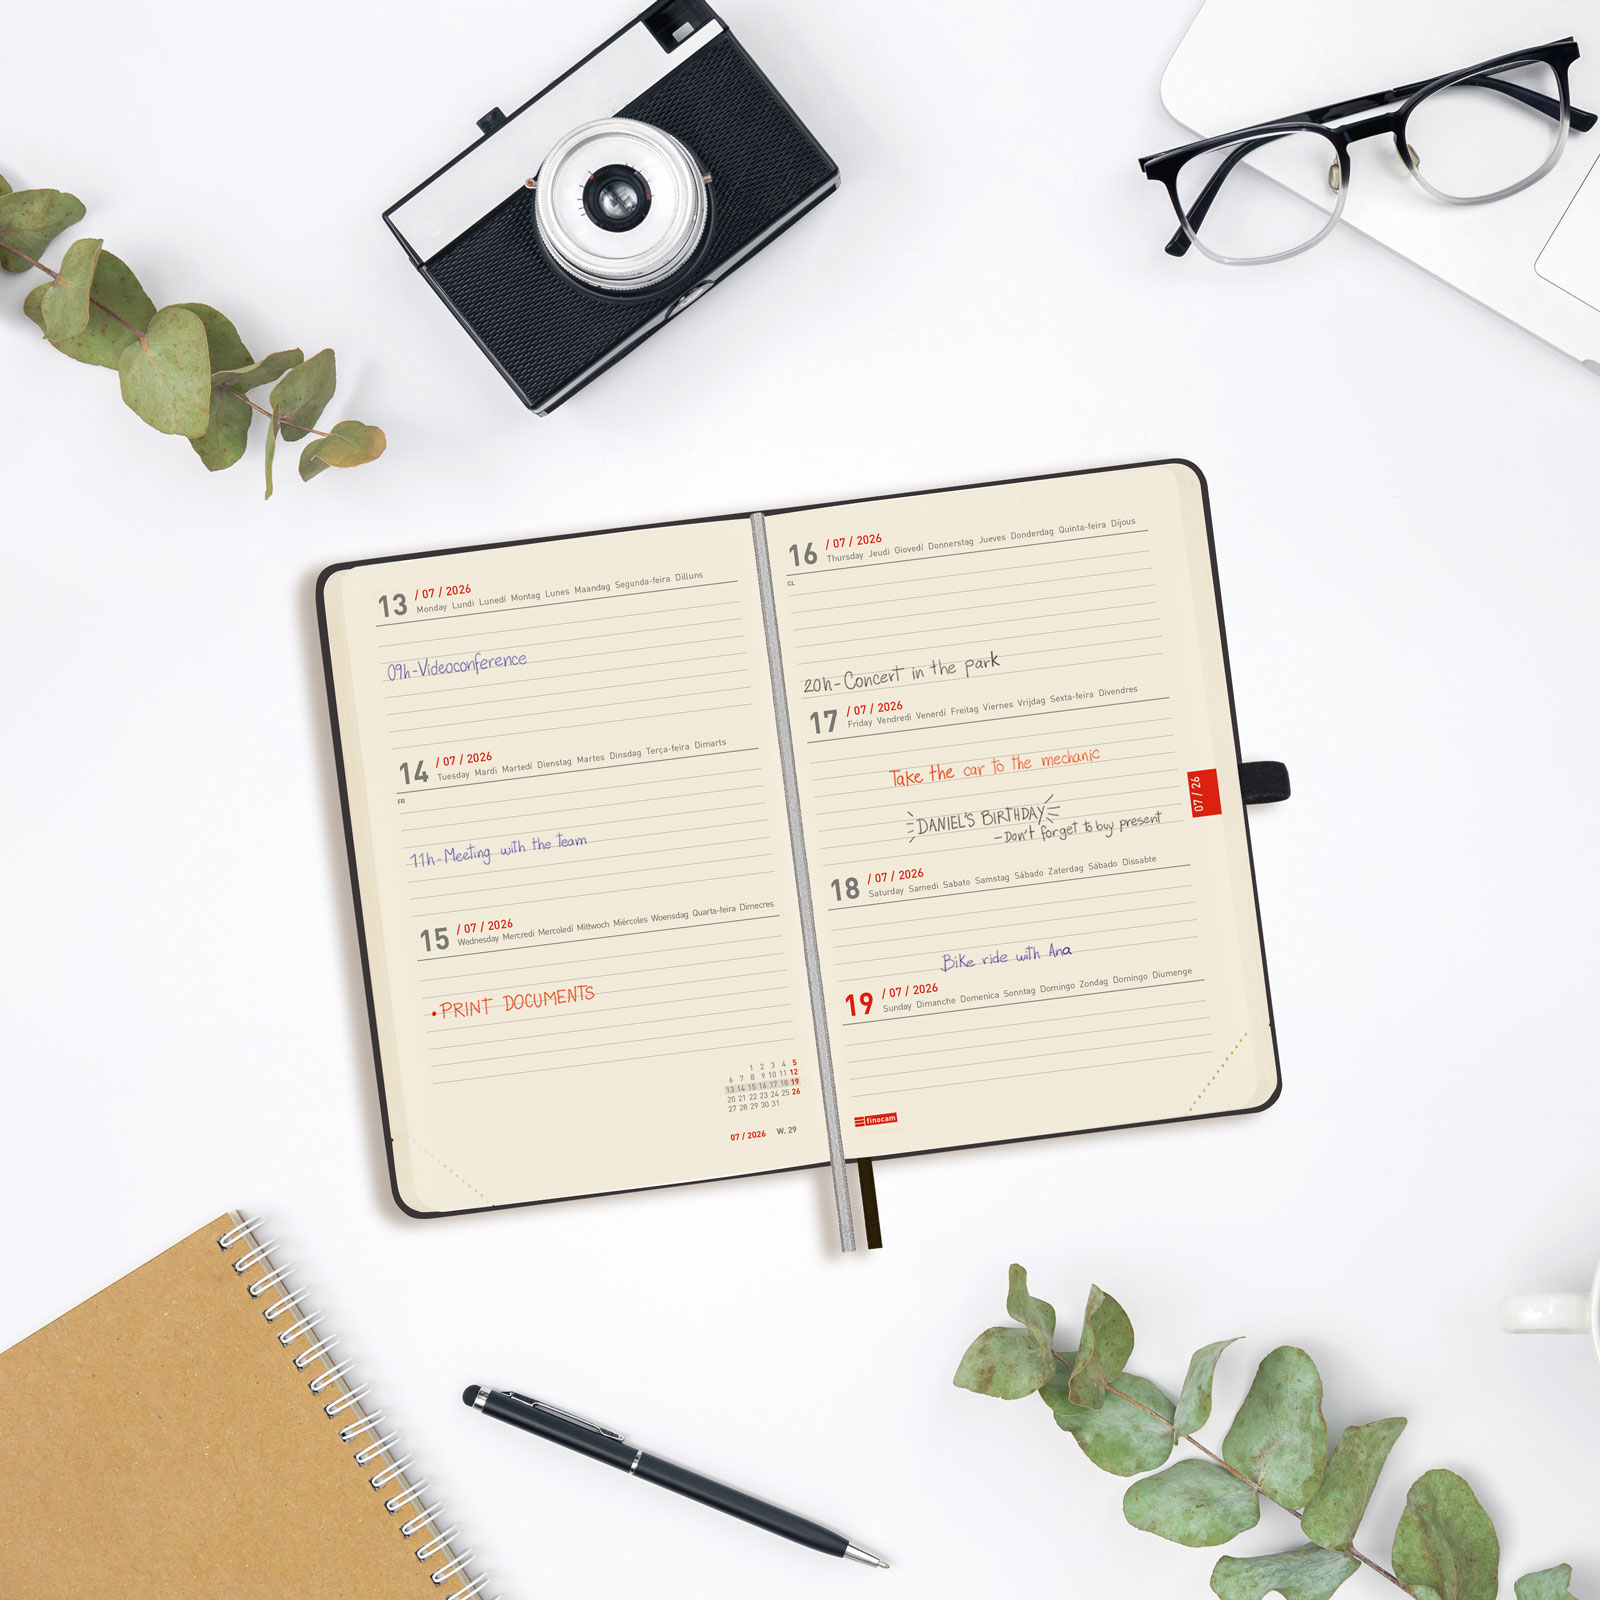 13 / 07 / 2026
Monday Lundi Lunedí Montag Lunes Maandag Segunda-feira Dilluns
09h-Videoconference
14 / 07 / 2026
Tuesday Mardi Martedí Dienstag Martes Dinsdag Terça-feira Dimarts
FR
11h-Meeting with the team
15 / 07 / 2026
Wednesday Mercredi Mercoledí Mittwoch Miércoles Woensdag Quarta-feira Dimecres
• PRINT DOCUMENTS
1 2 3 4 5
6 7 8 9 10 11 12
13 14 15 16 17 18 19
20 21 22 23 24 25 26
27 28 29 30 31
07 / 2026 W. 29
16 / 07 / 2026
Thursday Jeudi Giovedí Donnerstag Jueves Donderdag Quinta-feira Dijous
CL
20h-Concert in the park
17 / 07 / 2026
Friday Vendredi Venerdí Freitag Viernes Vrijdag Sexta-feira Divendres
Take the car to the mechanic
DANIEL'S BIRTHDAY
-Don't forget to buy present
07 / 26
18 / 07 / 2026
Saturday Samedi Sabato Samstag Sábado Zaterdag Sábado Dissabte
Bike ride with Ana
19 / 07 / 2026
Sunday Dimanche Domenica Sonntag Domingo Zondag Domingo Diumenge
finocam